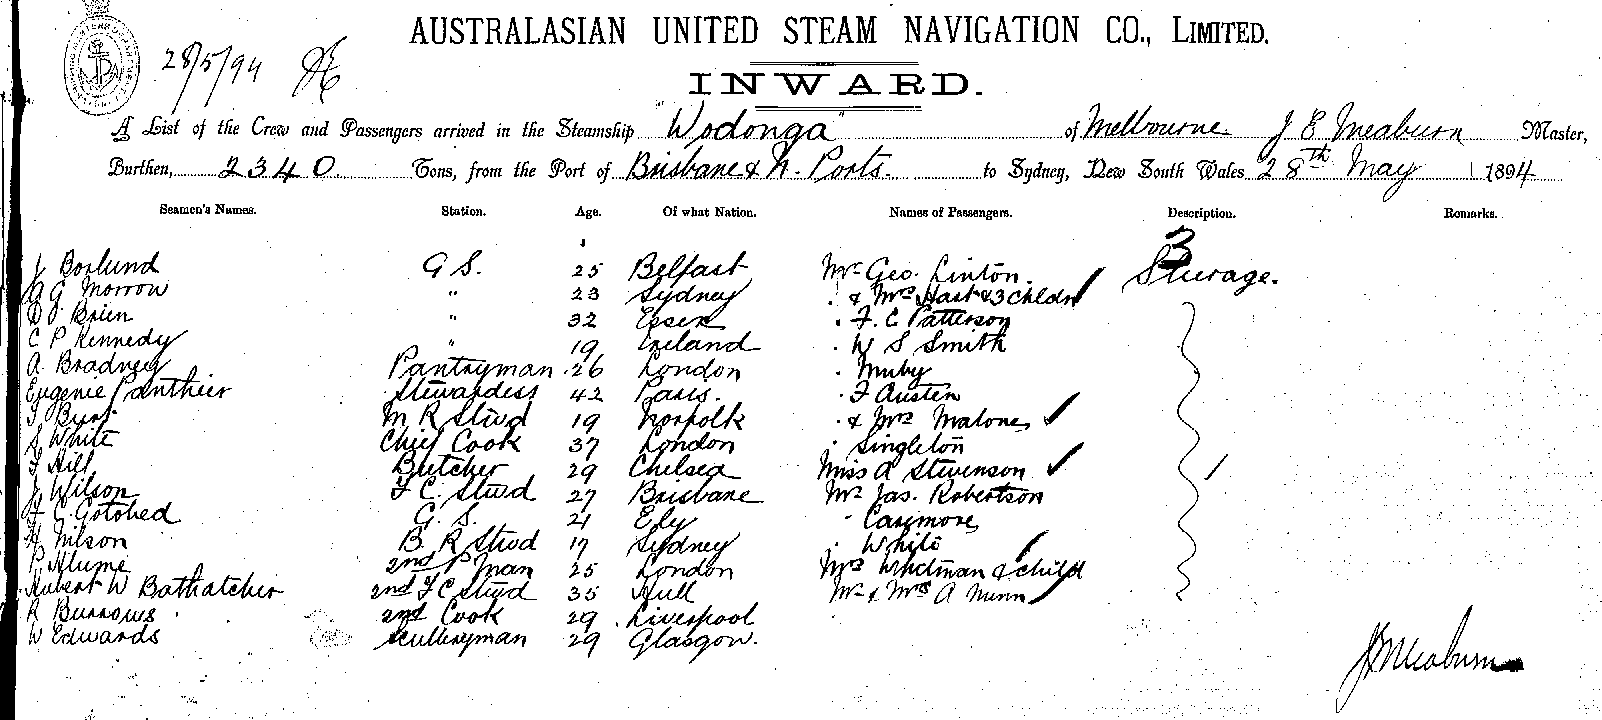 28/5/94
AUSTRALASIAN UNITED STEAM NAVIGATION CO., LIMITED.
INWARD.
A List of the Crew and Passengers arrived in the Steamship "Wodonga" of Melbourne J E Meaburn Master,
Burthen, 2340 Tons, from the Port of Brisbane & N. Ports. to Sydney, New South Wales 28th May 1894
Seamen's Names. Station. Age. Of what Nation. Names of Passengers. Description. Remarks.
3
J Borlund G S. 25 Belfast Mr Geo. Linton Steerage.
G Morrow " 23 Sydney . & Mrs Hast & 3 Childn
Brien " 32 Essex . F. C Patterson
C P Kennedy " 19 Ireland . W S Smith
A. Bradney Pantryman 26 London . Muby
Eugenie Panthier Stewardess 42 Paris. . F Austen
M R Stwd 19 Norfolk . & Mrs Malone
S White Chief Cook 37 London . Singleton
F Hill Butcher 29 Chelsea Miss A Stevenson
J Wilson F C. Stwd 27 Brisbane Mr Jas. Robertson
C. Gotobed G. S. 21 Ely . Casemore
H Nilson B. R Stwd 17 Sydney . White
P. Hume 2nd P man 25 London Mrs Whitman & child
Hubert W Bathatcher 2nd F C Stwd 35 Hull Mr & Mrs A Nunn
R Burrows 2nd Cook 29 Liverpool
W Edwards Sculleryman 29 Glasgow.
J E Meaburn